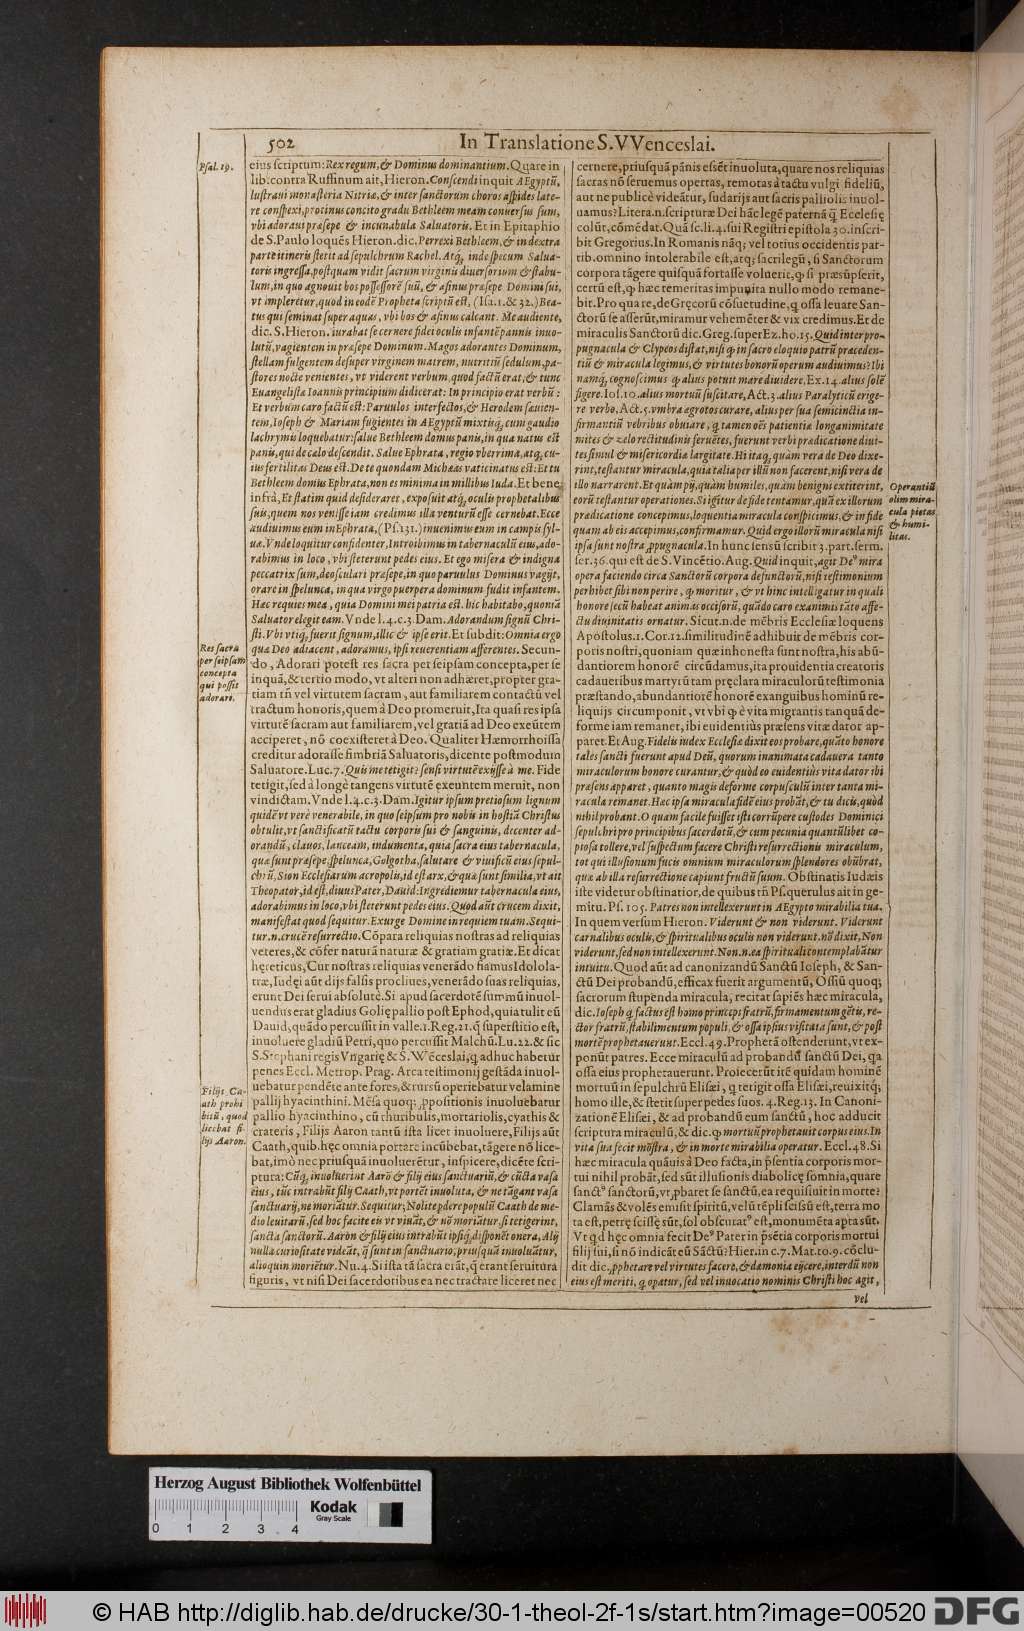 502
In Translatione S. VVenceslai.
Psal. 19.
eius scriptum: Rex regum, & Dominus dominantium. Quare in
lib. contra Ruffinum ait, Hieron. Conscendi inquit AEgyptũ,
lustraui monasteria Nitriæ, & inter sanctorum choros aspides late-
re conspexi, protinus concito gradu Bethleem meam conuersus sum,
vbi adoraui præsepe & incunabula Saluatoris. Et in Epitaphio
de S. Paulo loquẽs Hieron. dic. Perrexi Bethleem, & in dextra
parte itineris sterit ad sepulchrum Rachel. Atq́, inde specum Salua-
toris ingressa, postquam vidit sacrum virginis diuersorium & stabu-
lum, in quo agnouit bos possessorẽ suũ, & asinus præsepe Domini sui,
vt impleretur, quod in eodẽ Propheta scriptũ est, (Isa. 1. & 32.) Bea-
tus qui seminat super aquas, vbi bos & asinus calcant. Me audiente,
dic. S. Hieron. iurabat se cernere fidei oculis infantẽ pannis inuo-
lutũ, vagientem in præsepe Dominum. Magos adorantes Dominum,
stellam fulgentem desuper virginem matrem, nutritiũ sedulum, pa-
stores nocte venientes, vt viderent verbum, quod factũ erat, & tunc
Euangelista Ioannis principium didicerat: In principio erat verbũ:
Et verbum caro factũ est: Paruulos interfectos, & Herodem sæuien-
tem, Ioseph & Mariam fugientes in AEgyptũ mixtisq́, cum gaudio
lachrymis loquebatur: salue Bethleem domus panis, in qua natus est
panis, qui de cælo descendit. Salue Ephrata, regio vberrima, atq́, cu-
ius fertilitas Deus est. De te quondam Michæas vaticinatus est: Et tu
Bethleem domus Ephrata, non es minima in millibus Iuda. Et bene
infrà, Et statim quid desideraret, exposuit atq́, oculis prophetalibus
suis, quem nos venisse iam credimus illa venturũ esse cernebat. Ecce
audiuimus eum in Ephrata, (Ps. 131.) inuenimus eum in campis syl-
uæ. Vnde loquitur confidenter, Introibimus in tabernaculũ eius, ado-
rabimus in loco, vbi steterunt pedes eius. Et ego misera & indigna
peccatrix sum, deosculari præsepe, in quo paruulus Dominus vagijt,
orare in spelunca, in qua virgo puerpera dominum fudit infantem.
Hæc requies mea, quia Domini mei patria est. hic habitabo, quoniã
Saluator elegit eam. Vnde l. 4. c. 3. Dam. Adorandum signũ Chri-
sti. Vbi vtiq́, fuerit signum, illic & ipse erit. Et subdit: Omnia ergo
qua Deo adiacent, adoramus, ipsi reuerentiam afferentes. Secun-
do, Adorari potest res sacra per seipsam concepta, per se
inquã, & tertio modo, vt alteri non adhæret, propter gra-
tiam tñ vel virtutem sacram, aut familiarem contactũ vel
tractum honoris, quem à Deo promeruit, Ita quasi res ipsa
virtutẽ sacram aut familiarem, vel gratiã ad Deo exeũtem
acciperet, nõ coexisteret à Deo. Qualiter Hæmorrhoissa
creditur adorasse fimbriã Saluatoris, dicente postmodum
Saluatore. Luc. 7. Quis me tetigit? sensi virtutẽ exijsse à me. Fide
tetigit, sed à longè tangens virtutẽ exeuntem meruit, non
vindictam. Vnde l. 4. c. 3. Dam. Igitur ipsum pretiosum lignum
quidẽ vt verè venerabile, in quo seipsum pro nobis in hostiã Christus
obtulit, vt sanctificatũ tactu corporis sui & sanguinis, decenter ad-
orandũ, clauos, lanceam, indumenta, quia sacra eius tabernacula,
quæ sunt præsepe, spelunca, Golgotha, salutare & viuificũ eius sepul-
chrũ, Sion Ecclesiarum acropolis, id est arx, & quæ sunt similia, vt ait
Theopator, id est, diuus Pater, Dauid: Ingrediemur tabernacula eius,
adorabimus in loco, vbi steterunt pedes eius. Quod aũt crucem dixit,
manifestat quod sequitur. Exurge Domine in requiem tuam. Sequi-
tur. n. crucẽ resurrectio. Cõpara reliquias nostras ad reliquias
veteres, & cõfer naturã naturæ & gratiam gratiæ. Et dicat
hęreticus, Cur nostras reliquias venerãdo fiamus Idolola-
træ, Iudęi aũt dijs falsis procliues, venerãdo suas reliquias,
erunt Dei serui absolutè. Si apud sacerdotẽ summũ inuol-
uendus erat gladius Golię pallio post Ephod, quia tulit eũ
Dauid, quãdo percussit in valle. 1. Reg. 21. q̃ superstitio est,
inuoluere gladiũ Petri, quo percussit Malchũ. Lu. 22. & sic
S. Stephani regis Vngarię & S. Wẽceslai, q̃ adhuc habetur
penes Eccl. Metrop. Prag. Arca testimonij gestãda inuol-
uebatur pendẽte ante fores, & rursũ operiebatur velamine
pallij hyacinthini. Mẽsa quoq; ꝓpositionis inuoluebatur
pallio hyacinthino, cũ thuribulis, mortariolis, cyathis &
crateris, Filijs Aaron tantũ ista licet inuoluere, Filijs aũt
Caath, quib. hęc omnia portare incũbebat, tãgere nõ lice-
bat, imò nec priusquã inuoluerẽtur, inspicere, dicẽte scri-
ptura: Cũq́, inuoluerint Aarõ & filij eius sanctuariũ, & cũcta vasa
eius, tũc intrabũt filij Caath, vt portẽt inuoluta, & ne tãgant vasa
sanctuarij, ne moriãtur. Sequitur; Nolite pdere populũ Caath de me-
dio leuitarũ, sed hoc facite eis vt viuãt, & nõ moriãtur, si tetigerint,
sancta sanctorũ. Aaron & filij eius intrabũt ipsiq́, disponẽt onera, Alij
nulla curiositate videãt, q̃ sunt in sanctuario, priusquã inuoluãtur,
alioquin moriẽtur. Nu. 4. Si ista tã sacra erãt, q̃ erant seruitura
figuris, vt nisi Dei sacerdotibus ea nec tractate liceret nec
Res sacra
per seipsam
concepta
qui possit
adorari.
Filijs Ca-
ath prohi
bitũ, quod
licebat fi-
lijs Aaron.
cernere, priusquã pãnis essẽt inuoluta, quare nos reliquias
sacras nõ seruemus opertas, remotas à tactu vulgi fideliũ,
aut ne publicè videãtur, sudarijs aut sacris palliolis inuol-
uamus? Litera. n. scripturæ Dei hãc legẽ paternã q̃ Ecclesię
colũt, cõmẽdat. Quã sc. li. 4. sui Registri epistola 30. inscri-
bit Gregorius. In Romanis nãq; vel totius occidentis par-
tib. omnino intolerabile est, atq; sacrilegũ, si Sanctorum
corpora tãgere quisquã fortasse voluerit, ꝙ si præsũpserit,
certũ est, ꝙ hæc temeritas impunita nullo modo remane-
bit. Pro qua re, de Gręcorũ cõsuetudine, q̃ ossa leuare San-
ctorũ se asserũt, miramur vehemẽter & vix credimus. Et de
miraculis Sanctorũ dic. Greg. super Ez. ho. 15. Quid inter pro-
pugnacula & Clypeos distat, nisi ꝙ in sacro eloquio patrũ præceden-
tiũ & miracula legimus, & virtutes bonorũ operum audiuimus? Ibi
namq́, cognoscimus ꝙ alius potuit mare diuidere. Ex. 14. alius solẽ
figere. Ios. 10. alius mortuũ suscitare, Act. 3. alius Paralyticũ erige-
re verbo, Act. 5. vmbra ægrotos curare, alius per sua semicinctia in-
firmantiũ vebribus obuiare, q̃ tamen oẽs patientiæ longanimitate
mites & zelo rectitudinis feruẽtes, fuerunt verbi prædicatione diui-
tes simul & misericordia largitate. Hi itaq́, quàm vera de Deo dixe-
rint, testantur miracula, quia talia per illũ non facerent, nisi vera de
illo narrarent. Et quàm pij, quàm humiles, quàm benigni extiterint,
eorũ testantur operationes. Si igitur de fide tentamur, quã ex illorum
prædicatione concepimus, loquentia miracula conspicimus, & in fide
quam ab eis accepimus, confirmamur. Quid ergo illorũ miracula nisi
ipsa sunt nostra ꝓpugnacula. In hunc sensũ scribit 3. part. serm.
ser. 36. qui est de S. Vincẽtio. Aug. Quid inquit, agit De⁹ mira
opera faciendo circa Sanctorũ corpora defunctorũ, nisi testimonium
perhibet sibi non perire, ꝙ moritur, & vt hinc intelligatur in quali
honore secũ habeat animas occisorũ, quãdo caro exanimis tãto affe-
ctu diuinitatis ornatur. Sicut. n. de mẽbris Ecclesiæ loquens
Apostolus. 1. Cor. 12. similitudinẽ adhibuit de mẽbris cor-
poris nostri, quoniam quæ inhonesta sunt nostra, his abũ-
dantiorem honorẽ circũdamus, ita prouidentia creatoris
cadaueribus martyrũ tam pręclara miraculorũ testimonia
præstando, abundantiorẽ honorẽ exanguibus hominũ re-
liquijs circumponit, vt vbi ꝙ è vita migrantis tanquã de-
forme iam remanet, ibi euidentiùs præsens vitæ dator ap-
paret. Et Aug. Fidelis iudex Ecclesiæ dixit eos probare, quãto honore
tales sancti fuerunt apud Deũ, quorum inanimata cadauera tanto
miraculorum honore curantur, & quòd eo euidentiùs vita dator ibi
præsens apparet, quanto magis deforme corpusculũ inter tanta mi-
racula remanet. Hæc ipsa miracula fidẽ eius probãt, & tu dicis, quòd
nihil probant. O quam facile fuisset isti corrũpere custodes Dominici
sepulchri pro principibus sacerdotũ, & cum pecunia quantũlibet co-
piosa tollere, vel suspectum facere Christi resurrectionis miraculum,
tot qui illusionum fucis omnium miraculorum splendores obũbrat,
quæ ab illa resurrectione capiunt fructũ suum. Obstinatis Iudæis
iste videtur obstinatior, de quibus tñ Ps. querulus ait in ge-
mitu. Ps. 105. Patres non intellexerunt in AEgypto mirabilia tua.
In quem versum Hieron. Viderunt & non viderunt. Viderunt
carnalibus oculis, & spiritualibus oculis non viderunt. nõ dixit, Non
viderunt, sed non intellexerunt. Non. n. ea spirituali contemplabãtur
intuitu. Quod aũt ad canonizandũ Sanctũ Ioseph, & San-
ctũ Dei probandũ, efficax fuerit argumentũ, Ossiũ quoq;
sactorum stupenda miracula, recitat sapiẽs hæc miracula,
dic. Ioseph q̃ factus est homo princeps fratrũ, firmamentum gẽtis, re-
ctor fratrũ, stabilimentum populi, & ossa ipsius visitata sunt, & post
mortẽ prophetauerunt. Eccl. 49. Propherã ostenderunt, vt ex-
ponũt patres. Ecce miraculũ ad probandũ sanctũ Dei, q̃a
ossa eius prophetauerunt. Proiecerũt itẽ quidam hominẽ
mortuũ in sepulchrũ Elisæi, q̃ tetigit ossa Elisæi, reuixitq́;
homo ille, & stetit super pedes suos. 4. Reg. 13. In Canoni-
zationẽ Elisæi, & ad probandũ eum sanctũ, hoc adducit
scriptura miraculũ, & dic. ꝙ mortuũ prophetauit corpus eius. In
vita sua fecit mõstra, & in morte mirabilia operatur. Eccl. 48. Si
hæc miracula quãuis à Deo facta, in p̃sentia corporis mor-
tui nihil probãt, sed sũt illusionis diabolicę somnia, quare
sanct⁹ sanctorũ, vt ꝓbaret se sanctũ, ea requisiuit in morte?
Clamãs & volẽs emisit spiritũ, velũ tẽpli scissũ est, terra mo
ta est, petrę scissę sũt, sol obscurat⁹ est, monumẽta apta sũt.
Vt qd hęc omnia fecit De⁹ Pater in p̃sẽtia corporis mortui
filij sui, si nõ indicãt eũ Sãctũ? Hier. in c. 7. Mat. to. 9. cõclu-
dit dic. ꝓphetare vel virtutes facere, & dæmonia eijcere, interdũ non
eius est meriti, q̃ opatur, sed vel inuocatio nominis Christi hoc agit,
vel
Operantiũ
olim mira-
cula pietas
& humi-
litas.
Herzog August Bibliothek Wolfenbüttel
0 1 2 3 4
Kodak
Gray Scale
© HAB http://diglib.hab.de/drucke/30-1-theol-2f-1s/start.htm?image=00520
DFG